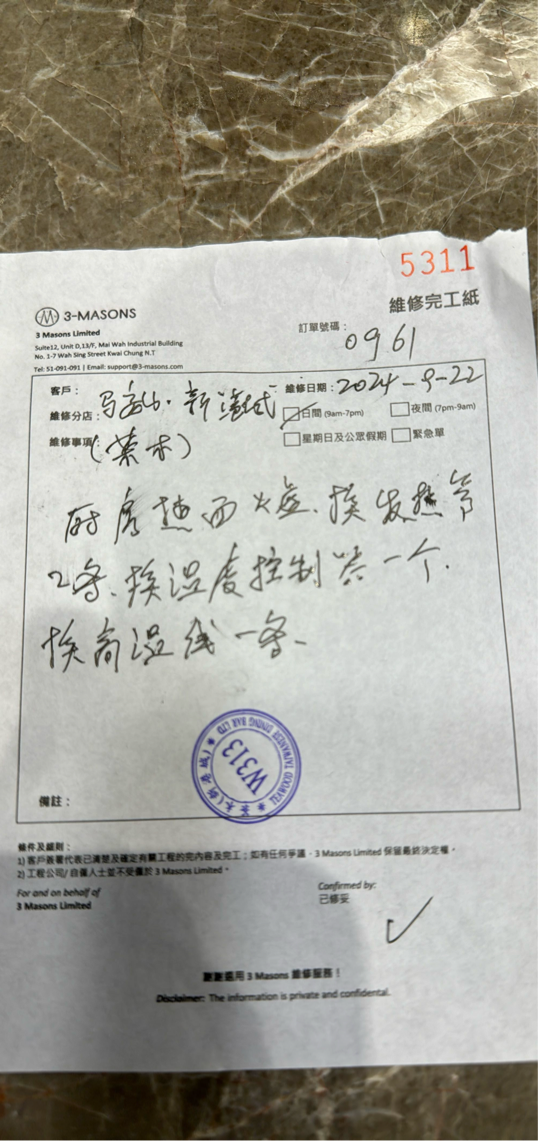 5311
維修完工紙
3-MASONS
3 Masons Limited
Suite12, Unit D,13/F, Mai Wah Industrial Building
No. 1-7 Wah Sing Street Kwai Chung N.T
Tel: 51-091-091 | Email: support@3-masons.com
訂單號碼：
0961
客戶：
維修分店：馬鞍山．新港城
維修日期：2024-9-22
日間 (9am-7pm) 夜間 (7pm-9am)
星期日及公眾假期 緊急單
維修事項：(茶木)
厨房 换发热管
2条、换温度控制 一个．
换高温线一条、
W313
TEAWOOD TAIWANESE DINING BAR LTD
茶木(新港城)
備註：
條件及細則：
1) 客戶簽署代表已清楚及確定有關工程的完內容及完工；如有任何爭議，3 Masons Limited 保留最終決定權。
2) 工程公司/ 自僱人士並不受僱於 3 Masons Limited。
For and on behalf of
3 Masons Limited
Confirmed by:
已修妥
謝謝選用 3 Masons 維修服務！
Disclaimer: The information is private and confidental.